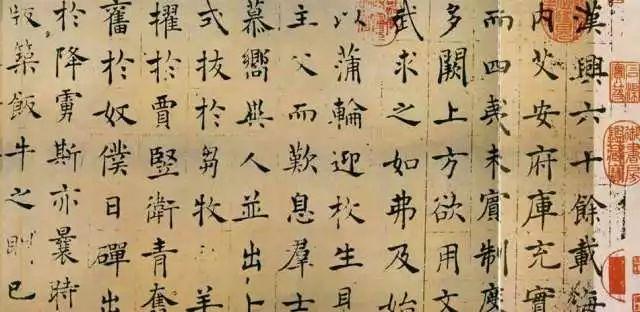 漢興六十餘載海
內艾安府庫充實
而四夷未賓制度
多闕上方欲用文
武求之如弗及始
以蒲輪迎枚生見
主父而歎息羣士
慕嚮異人並出卜
式拔於芻牧羊
擢於賈豎衛青奮
舊於奴僕日磾出
於降虜斯亦曩時
版築飯牛之朋已
御書房鑑藏寶